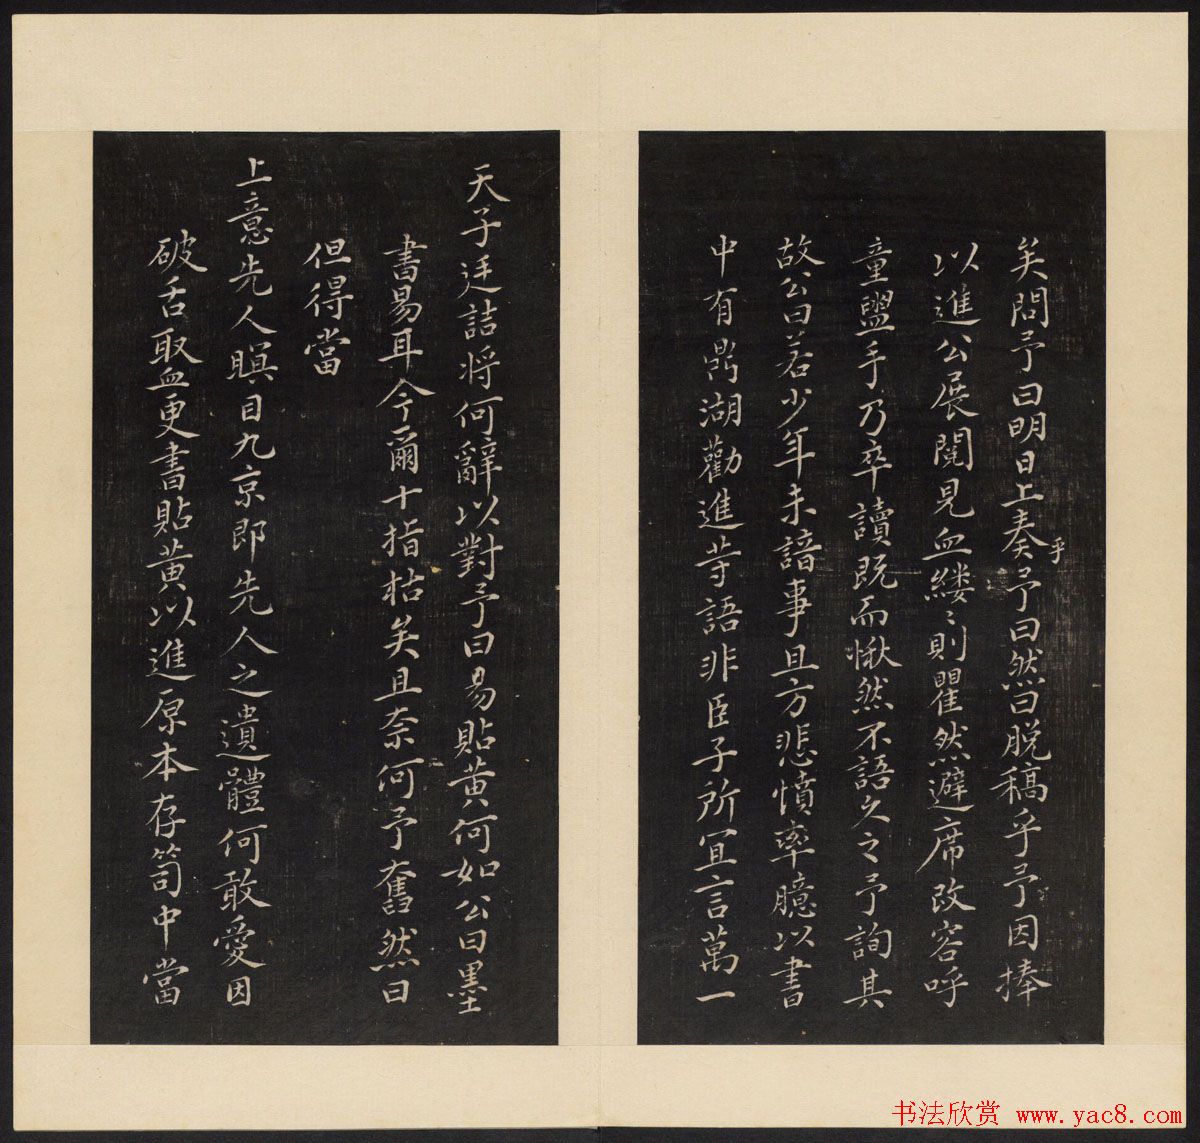 矣問予曰明日上奏乎予曰然曰脫稿乎予因捧
以進公展閱見血縷〻則瞿然避席改容呼
童盥手乃卒讀既而愀然不語久之予詢其
故公曰若少年未諳事且方悲憤率臆以書
中有鼎湖勸進等語非臣子所宜言萬一
天子廷詰將何辭以對予曰易貼黃何如公曰墨
書易耳今爾十指枯矣且奈何予奮然曰
但得當
上意先人瞑目九京即先人之遺體何敢愛因
破舌取血更書貼黃以進原本存笥中當
书法欣赏 www.yac8.com